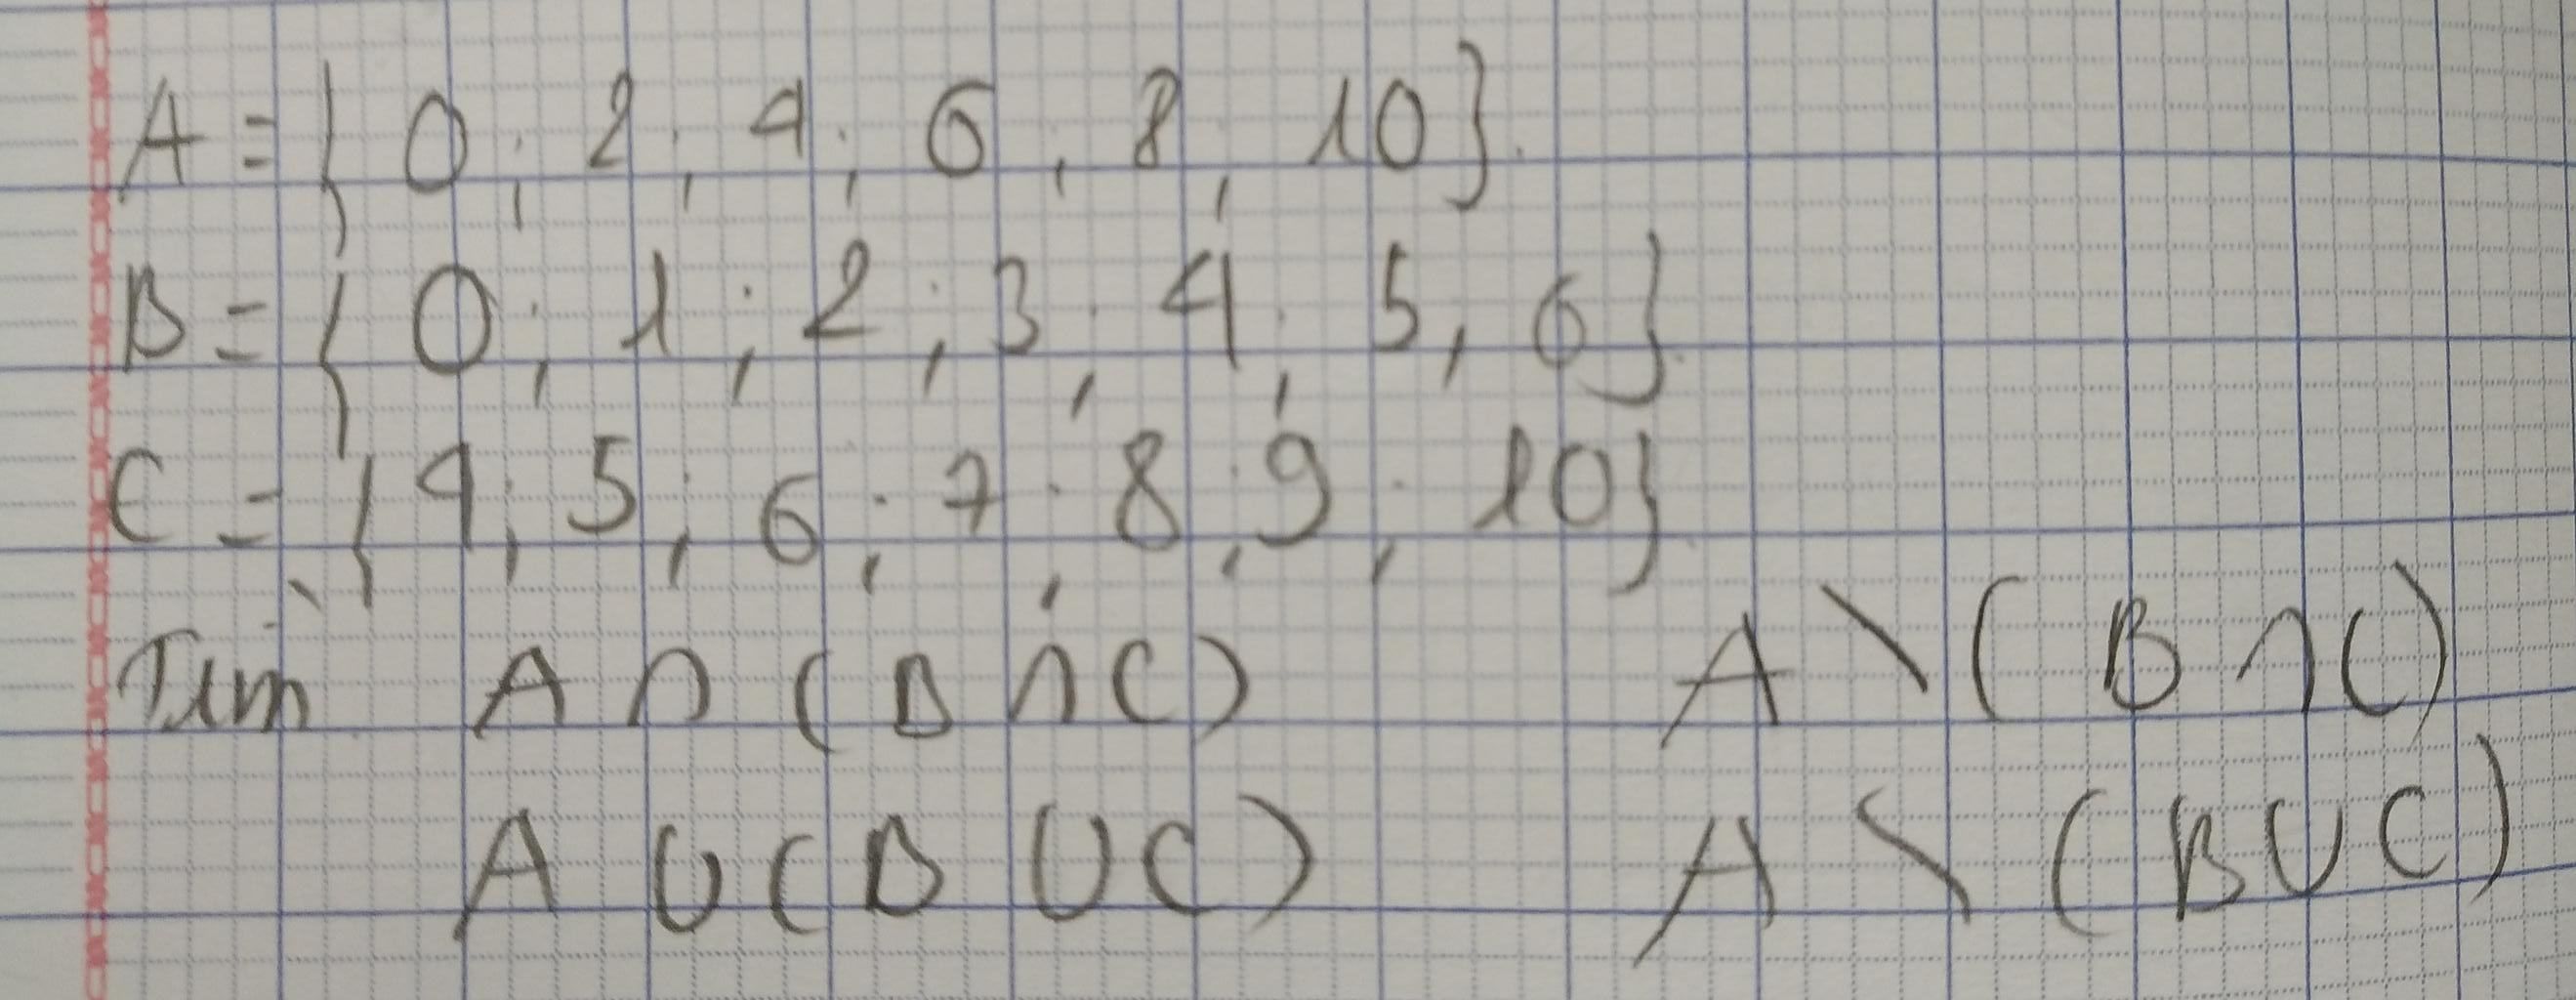 A = { 0 ; 2 ; 4 ; 6 ; 8 ; 10 }.
B = { 0 ; 1 ; 2 ; 3 ; 4 ; 5 ; 6 }.
C = { 4 ; 5 ; 6 ; 7 ; 8 ; 9 ; 10 }.
Tìm A ∩ ( B ∩ C ) A \ ( B ∩ C )
A ∪ ( B ∪ C ) A \ ( B ∪ C )